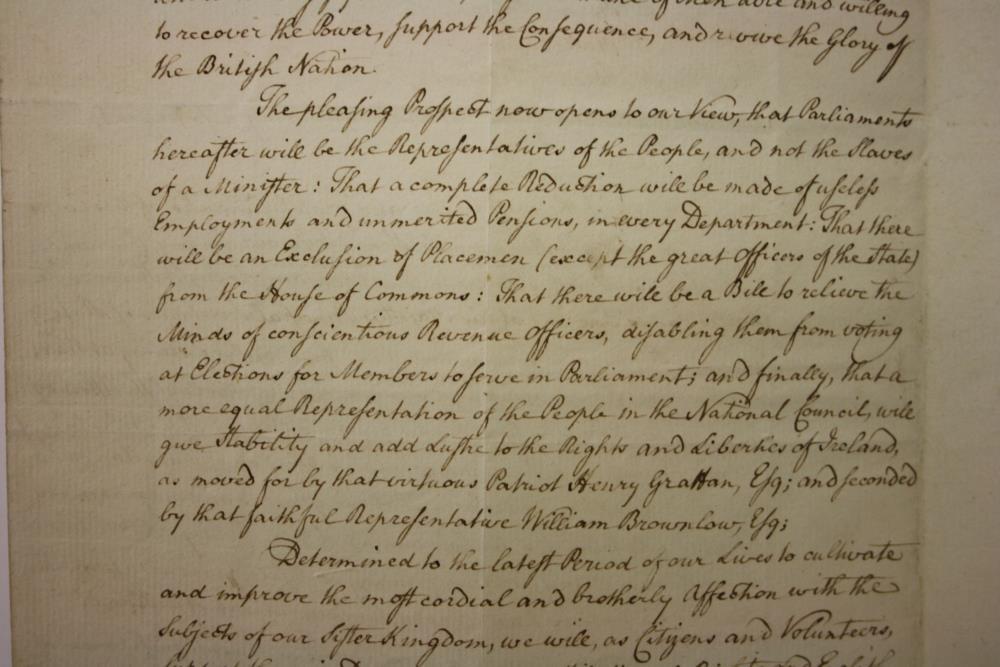 able and willing
to recover the Power, support the Consequence, and revive the Glory of
the British Nation.
The pleasing Prospect now opens to our View, that Parliaments
hereafter will be the Representatives of the People, and not the Slaves
of a Minister: That a complete Reduction will be made of useless
Employments and unmerited Pensions, in every Department: That there
will be an Exclusion of Placemen (except the great Officers of the State)
from the House of Commons: That there will be a Bill to relieve the
Minds of conscientious Revenue Officers, disabling them from voting
at Elections for Members to serve in Parliament; and finally, that a
more equal Representation of the People in the National Council, will
give Stability and add Lustre to the Rights and Liberties of Ireland,
as moved for by that virtuous Patriot Henry Grattan, Esq; and seconded
by that faithful Representative William Brownlow, Esq;
Determined to the latest Period of our Lives to cultivate
and improve the most cordial and brotherly Affection with the
Subjects of our Sister Kingdom, we will, as Citizens and Volunteers,